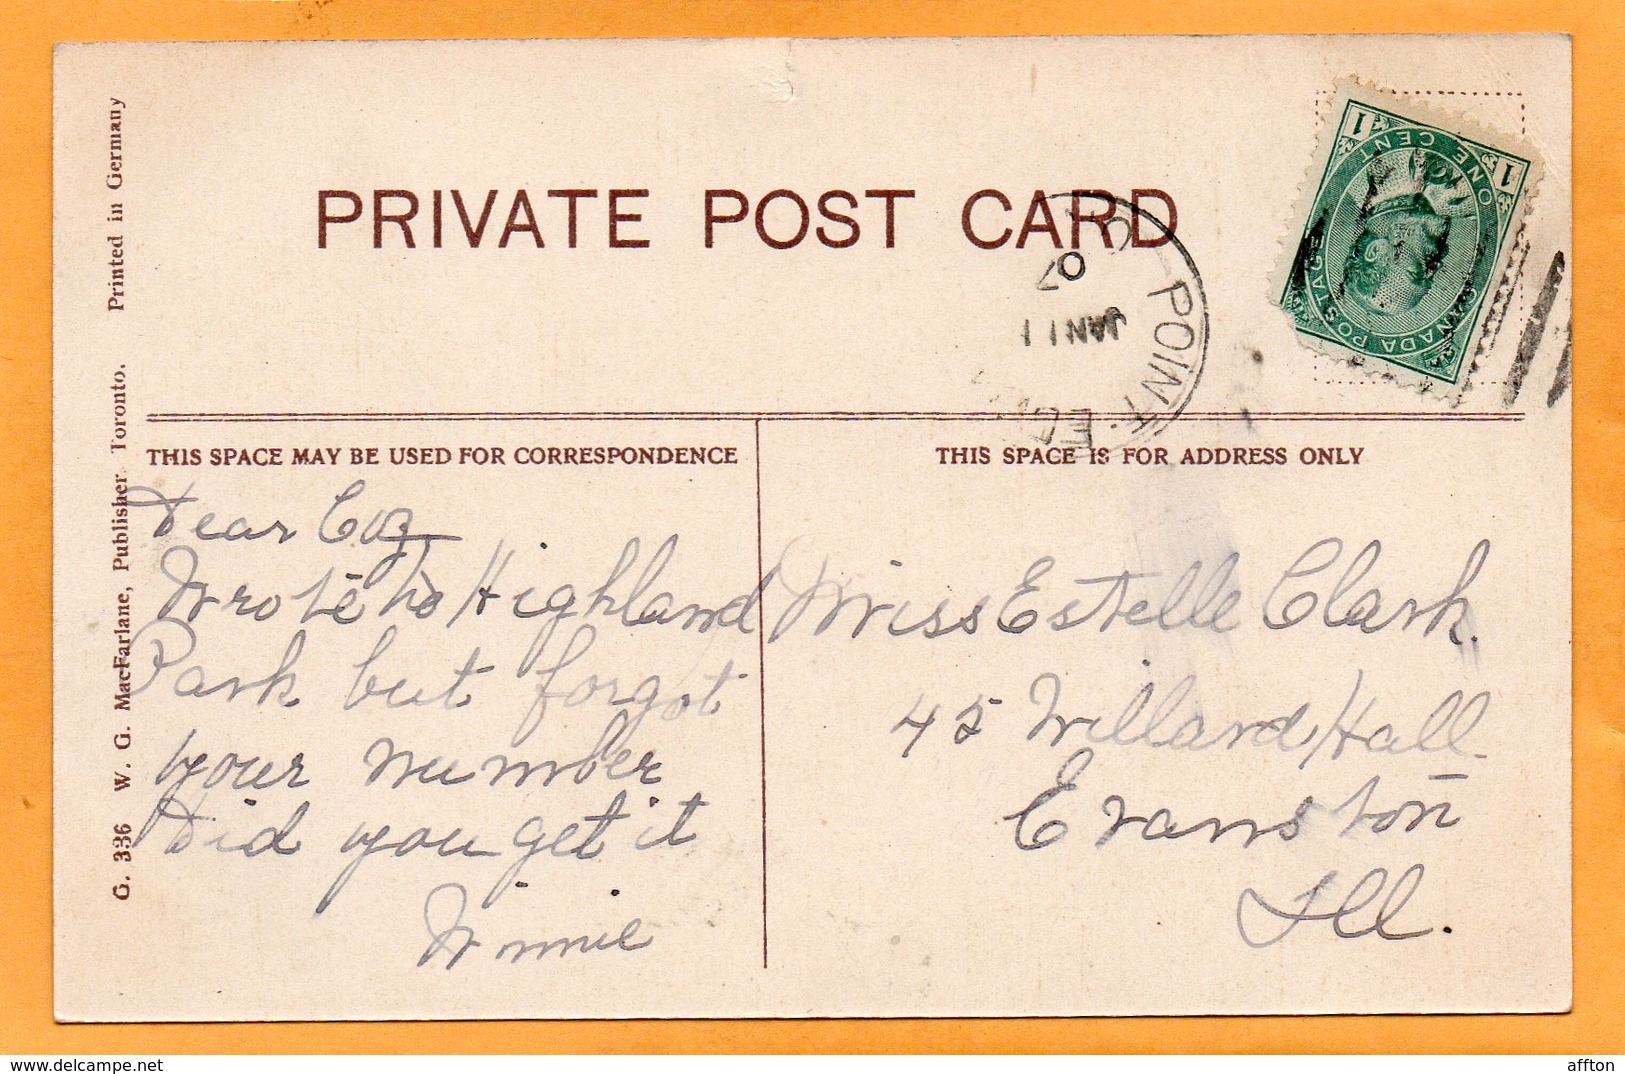 PRIVATE POST CARD
G. 336 W. G. MacFarlane, Publisher Toronto. Printed in Germany
1 1
ONE CENT
CANADA POSTAGE
POINT. ED
JAN 11
07
THIS SPACE MAY BE USED FOR CORRESPONDENCE
Dear Coz
Wrote to Highland
Park but forgot
your number
Did you get it
Winnie
THIS SPACE IS FOR ADDRESS ONLY
Miss Estelle Clark.
45 Willard Hall
Evanston
Ill.
affton